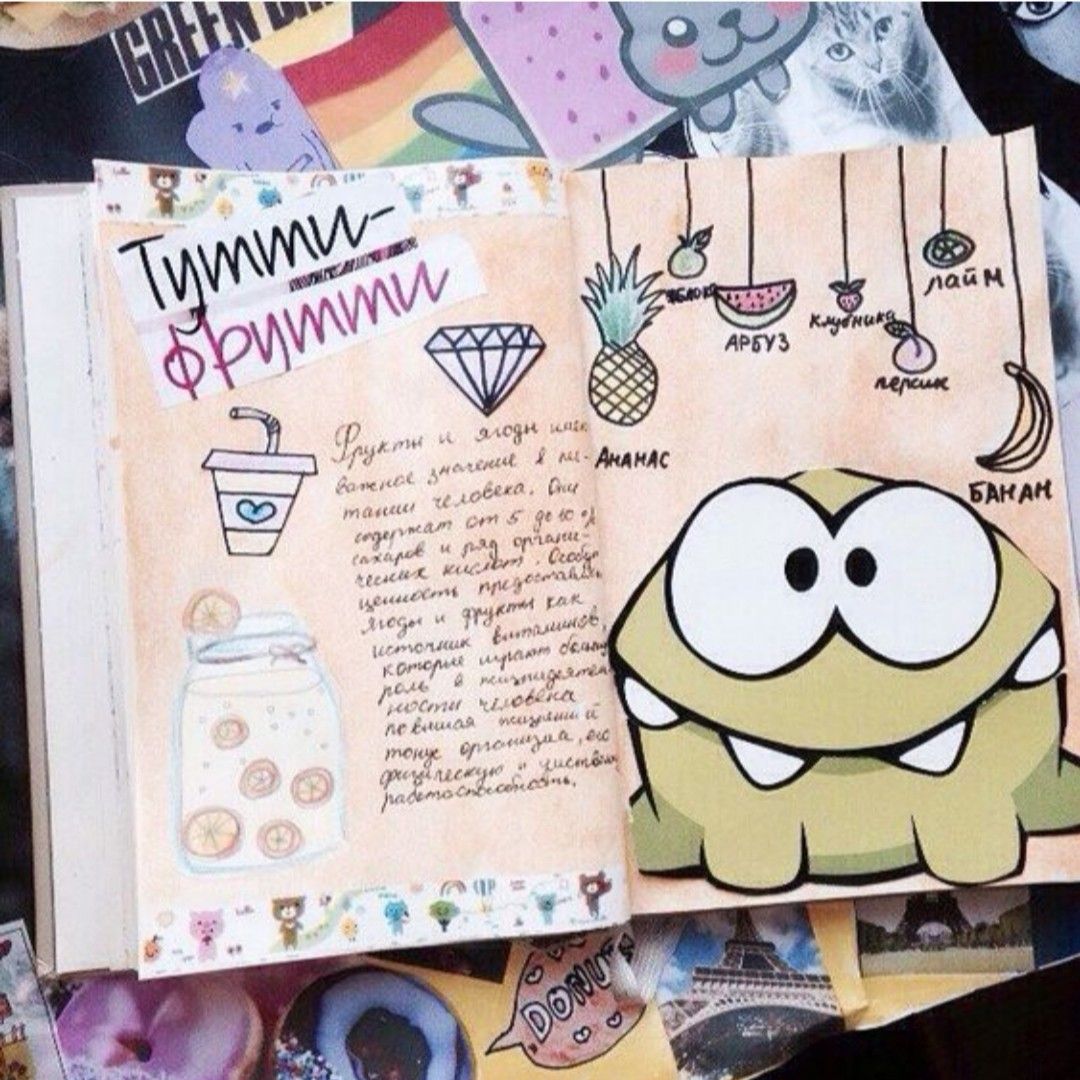 GREEN DAY
Тутти-
фрутти
Фрукты и ягоды имею
важное значение в пи-
тании человека. Они
содержат от 5 до
сахаров и ряд органи-
ческих кислот. Особую
ценность предоставля
ягоды и фрукты как
источник витаминов,
которые играют большую
роль в жизнидеятель
ности человека
повышая жизненный
тонус организма, его
физическую и умственную
работоспособность.
яблоко
лайм
АРБУЗ
клубника
персик
АНАНАС
БАНАН
DONUTS